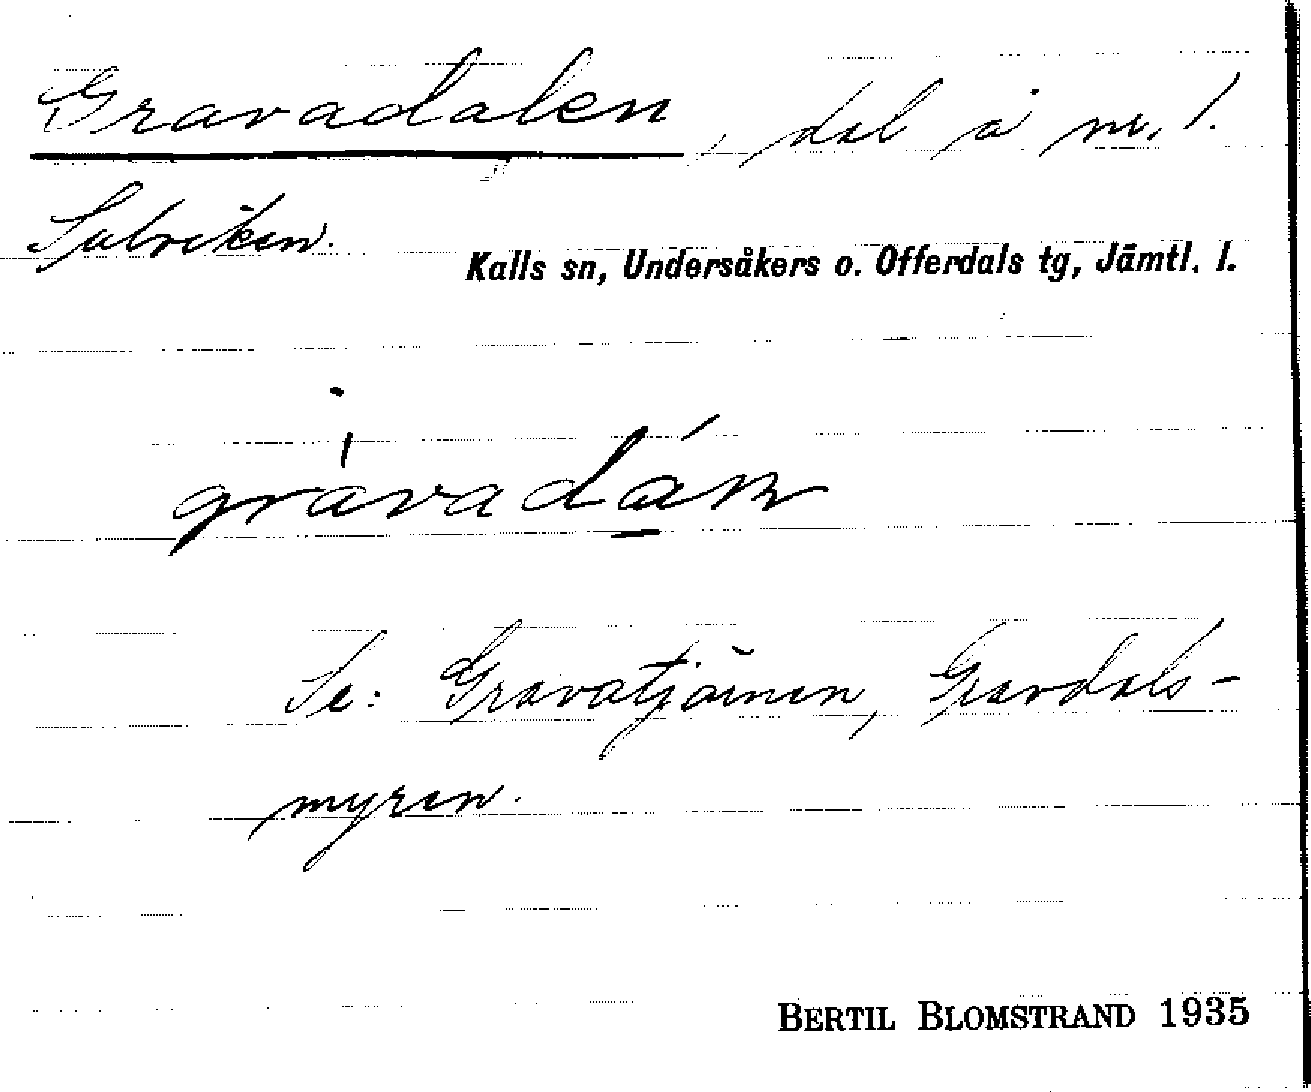 Gravadalen, dal å nr. 1.
Sulviken.
Kalls sn, Undersåkers o. Offerdals tg, Jämtl. l.
Se: Gravatjärnen, Gravdals-
myren.
BERTIL BLOMSTRAND 1935